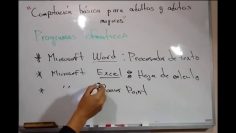 "Computación básica para adultos y adultos
mayores"
Programas ofimáticos
* Microsoft Word : Procesador de texto
* Microsoft Excel : Hoja de cálculo
* " Power Point